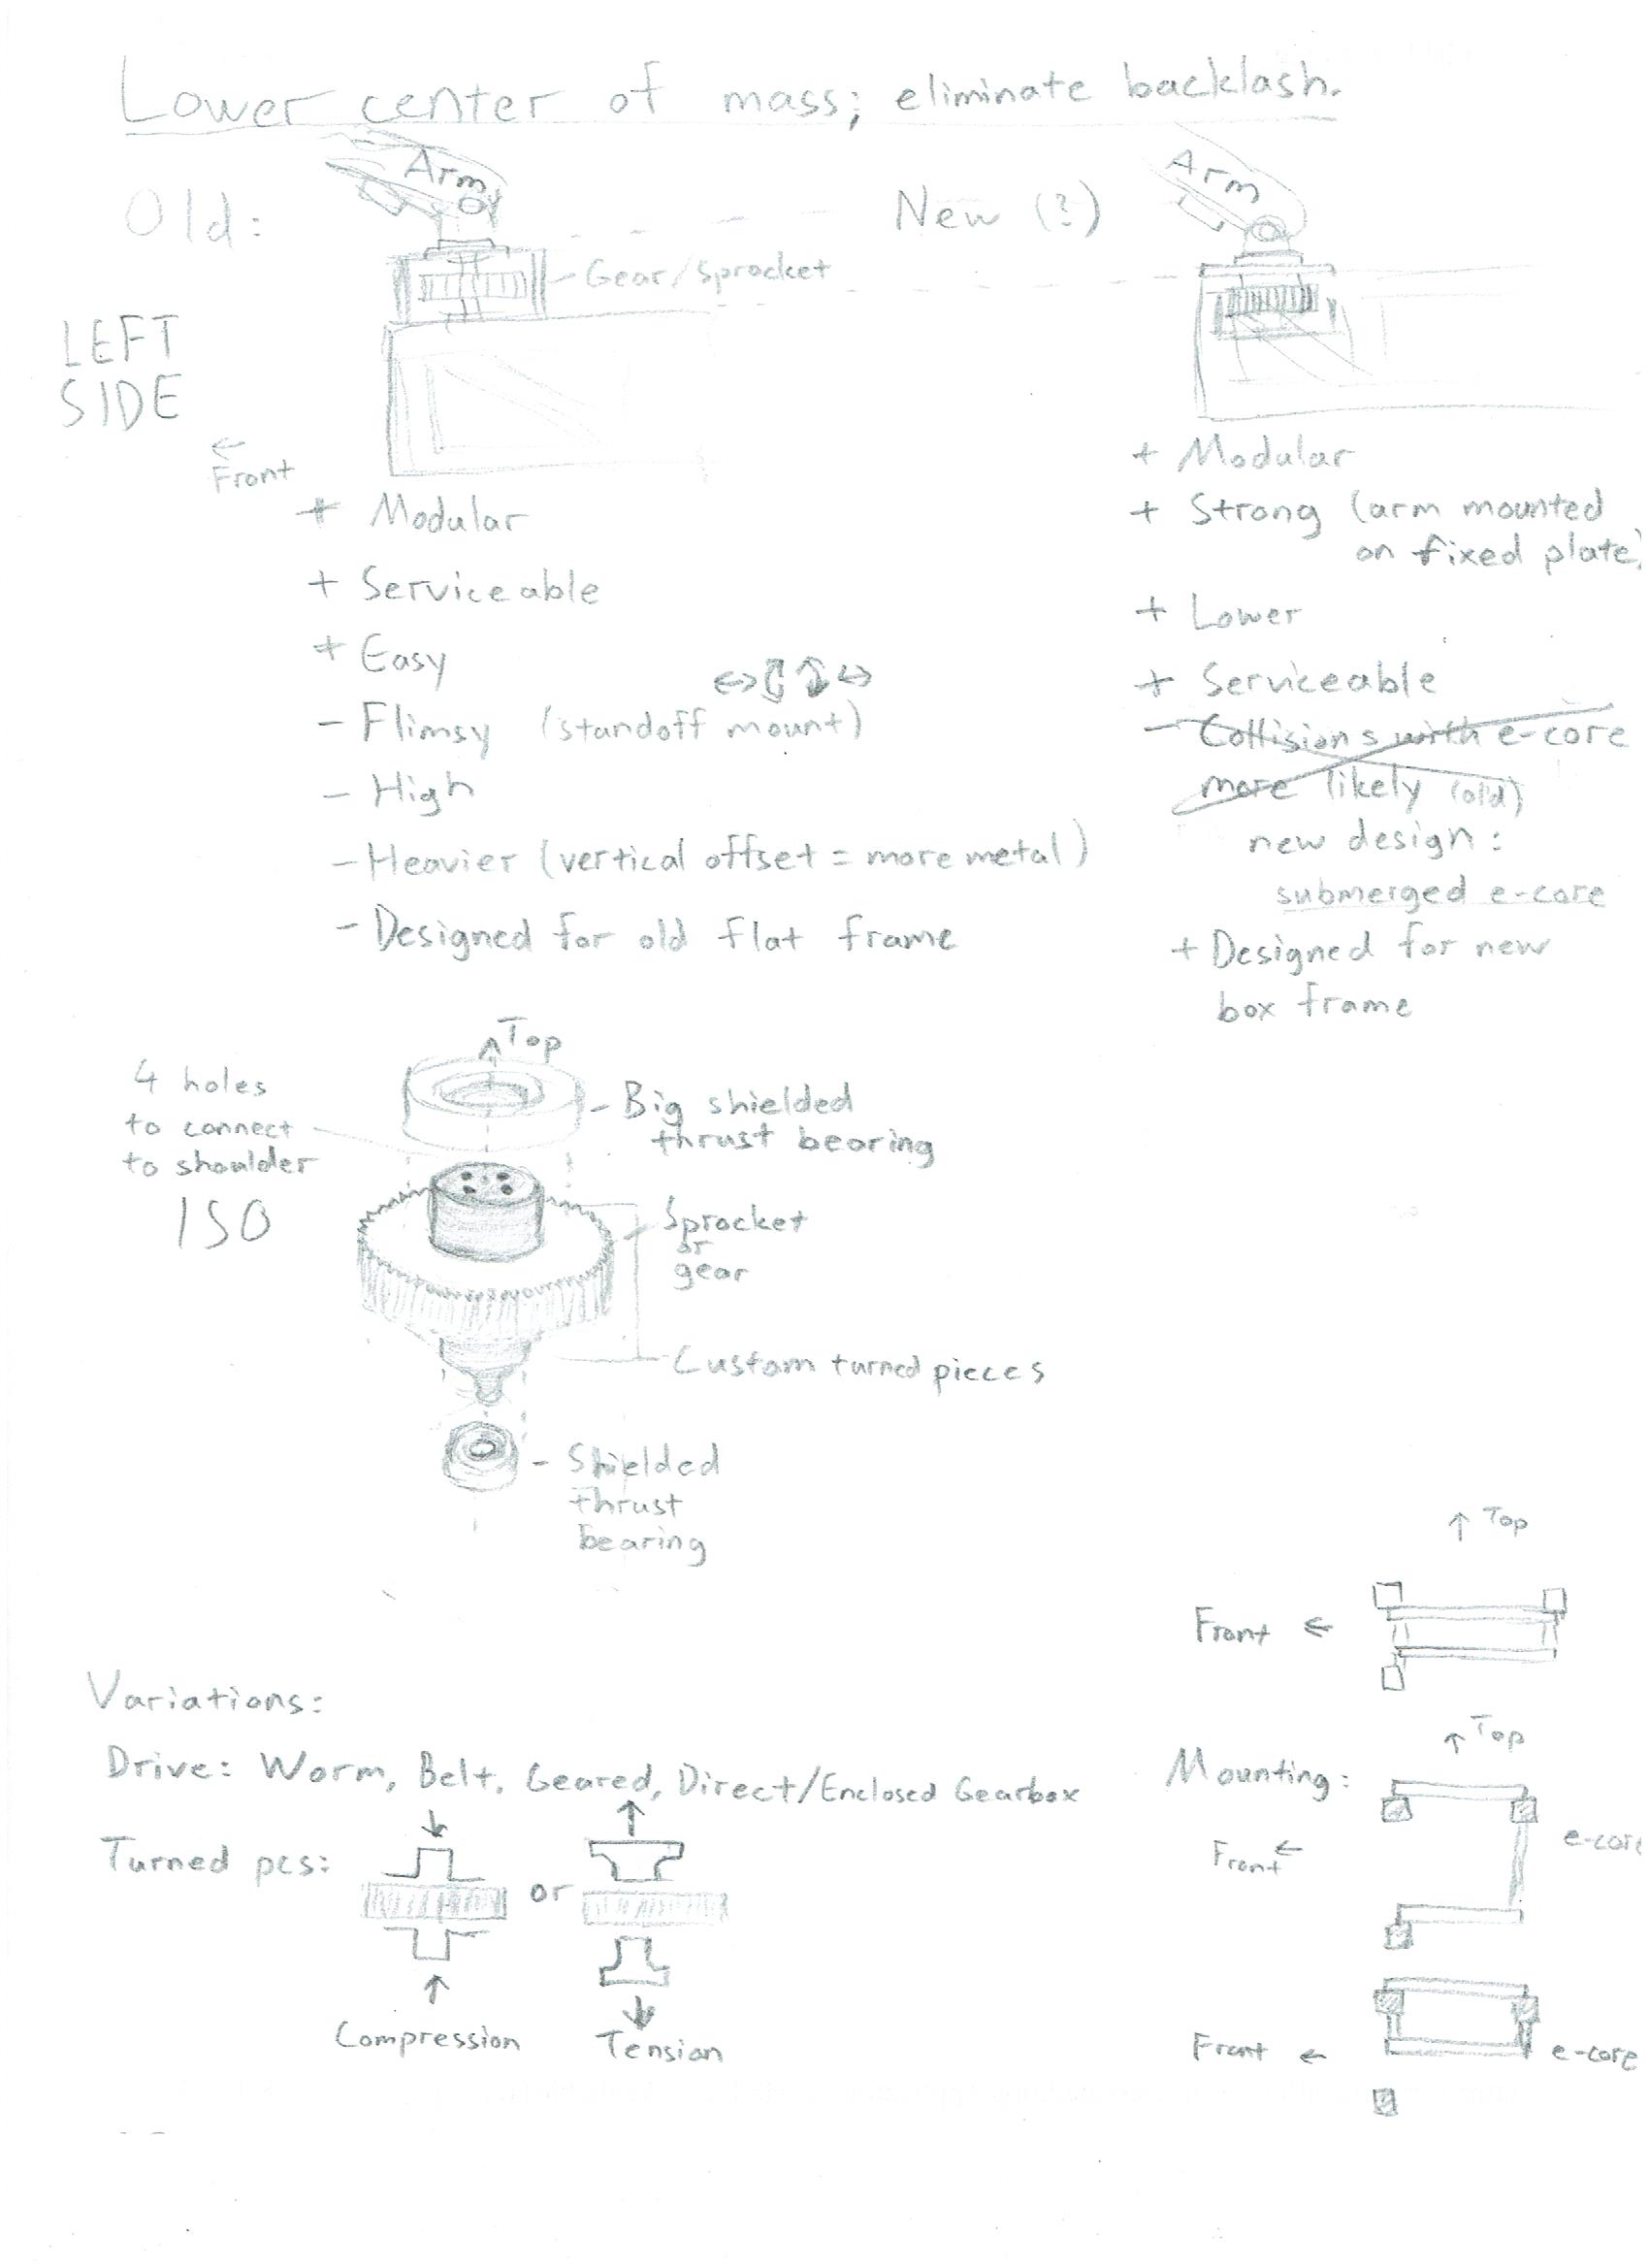 Lower center of mass; eliminate backlash.
Old:
Arm
Gear/Sprocket
LEFT
SIDE
← Front
+ Modular
+ Serviceable
+ Easy
- Flimsy (standoff mount)
- High
- Heavier (vertical offset = more metal)
- Designed for old flat frame
New (?)
Arm
+ Modular
+ Strong (arm mounted
on fixed plate)
+ Lower
+ Serviceable
- Collisions with e-core
more likely (old)
new design:
submerged e-core
+ Designed for new
box frame
Top
4 holes
to connect
to shoulder
ISO
- Big shielded
thrust bearing
Sprocket
or
gear
Custom turned pieces
- Shielded
thrust
bearing
Variations:
Drive: Worm, Belt, Geared, Direct/Enclosed Gearbox
Turned pcs:
or
Compression
Tension
↑ Top
Front ←
↑ Top
Mounting:
Front ←
e-core
Front ←
e-core